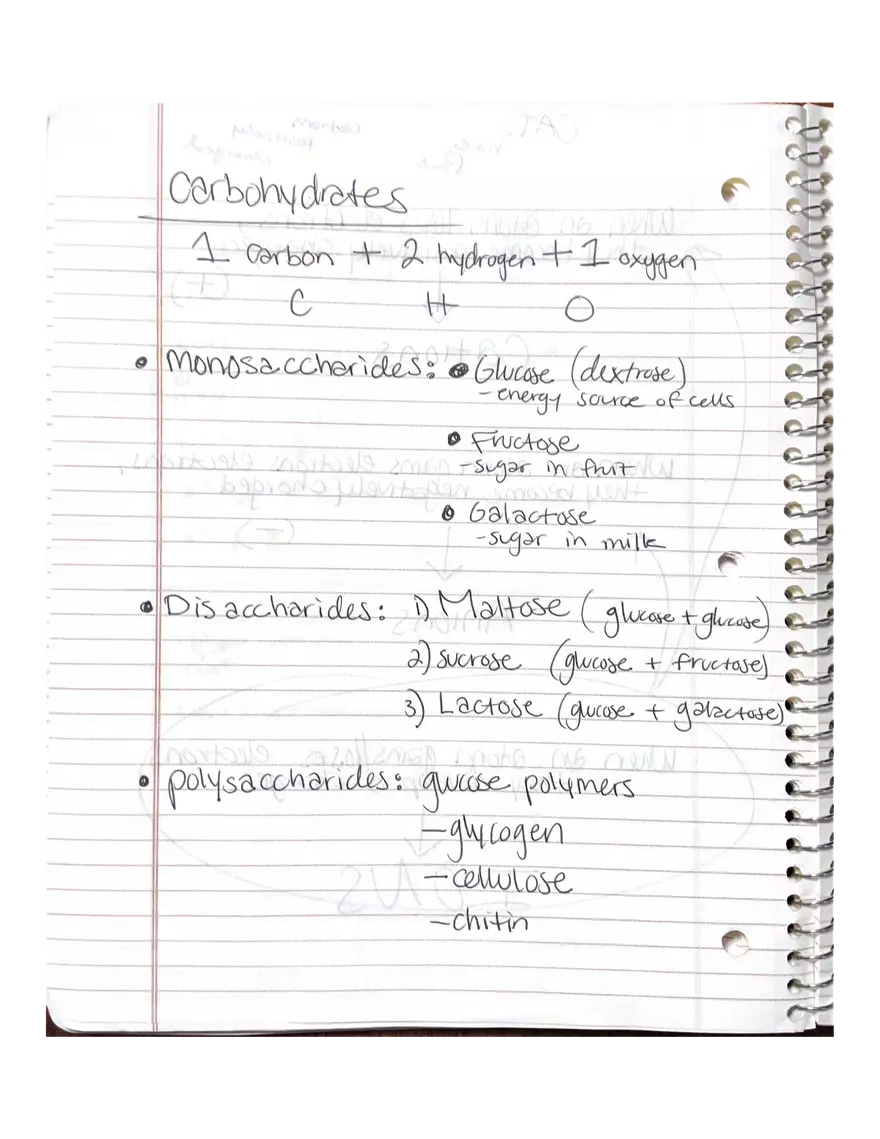 Carbohydrates
1 carbon + 2 hydrogen + 1 oxygen
C H O
• Monosaccharides: • Glucose (dextrose)
- energy source of cells
• Fructose
- sugar in fruit
• Galactose
- sugar in milk
• Disaccharides: 1) Maltose (glucose + glucose)
2) sucrose (glucose + fructose)
3) Lactose (glucose + galactose)
• polysaccharides: glucose polymers
- glycogen
- cellulose
- chitin